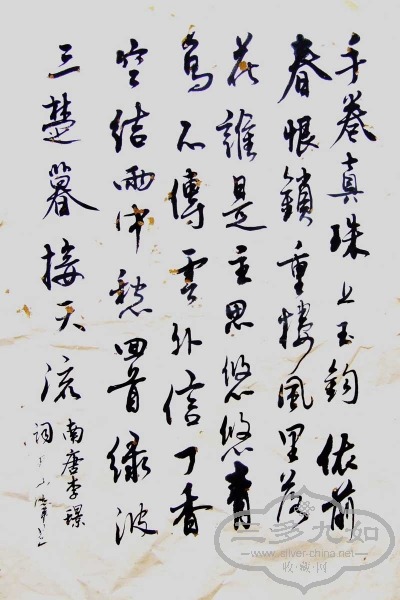 手卷真珠上玉鈎依前
春恨鎖重樓風里落
花誰是主思悠悠青
鳥不傳雲外信丁香
空結雨中愁回首緑波
三楚暮接天流
南唐李璟
詞
三多九如
www.silver-china.net
收藏网